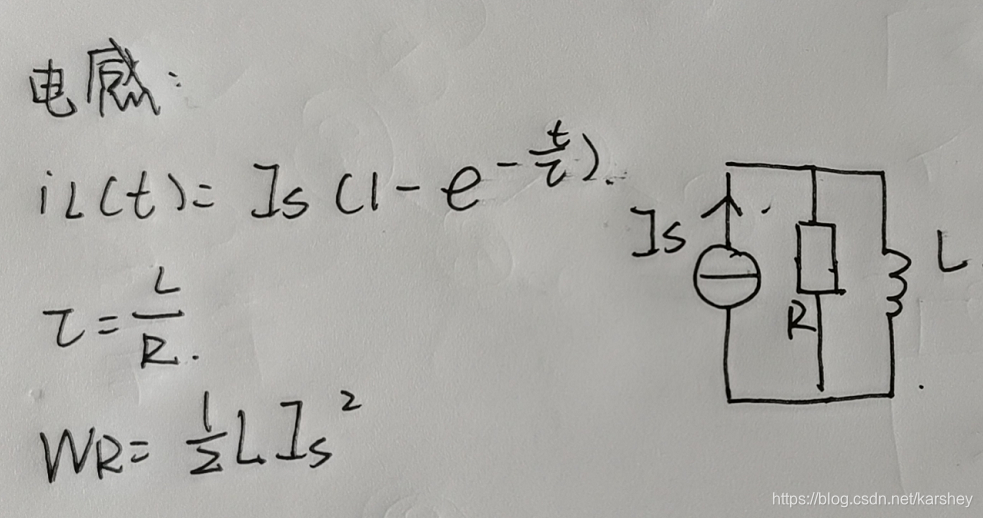 电感:
iL(t)= Is (1- e^{-\frac{t}{τ}}).
τ = \frac{L}{R}.
WR= \frac{1}{2} L Is^2
Is
R
L
https://blog.csdn.net/karshey